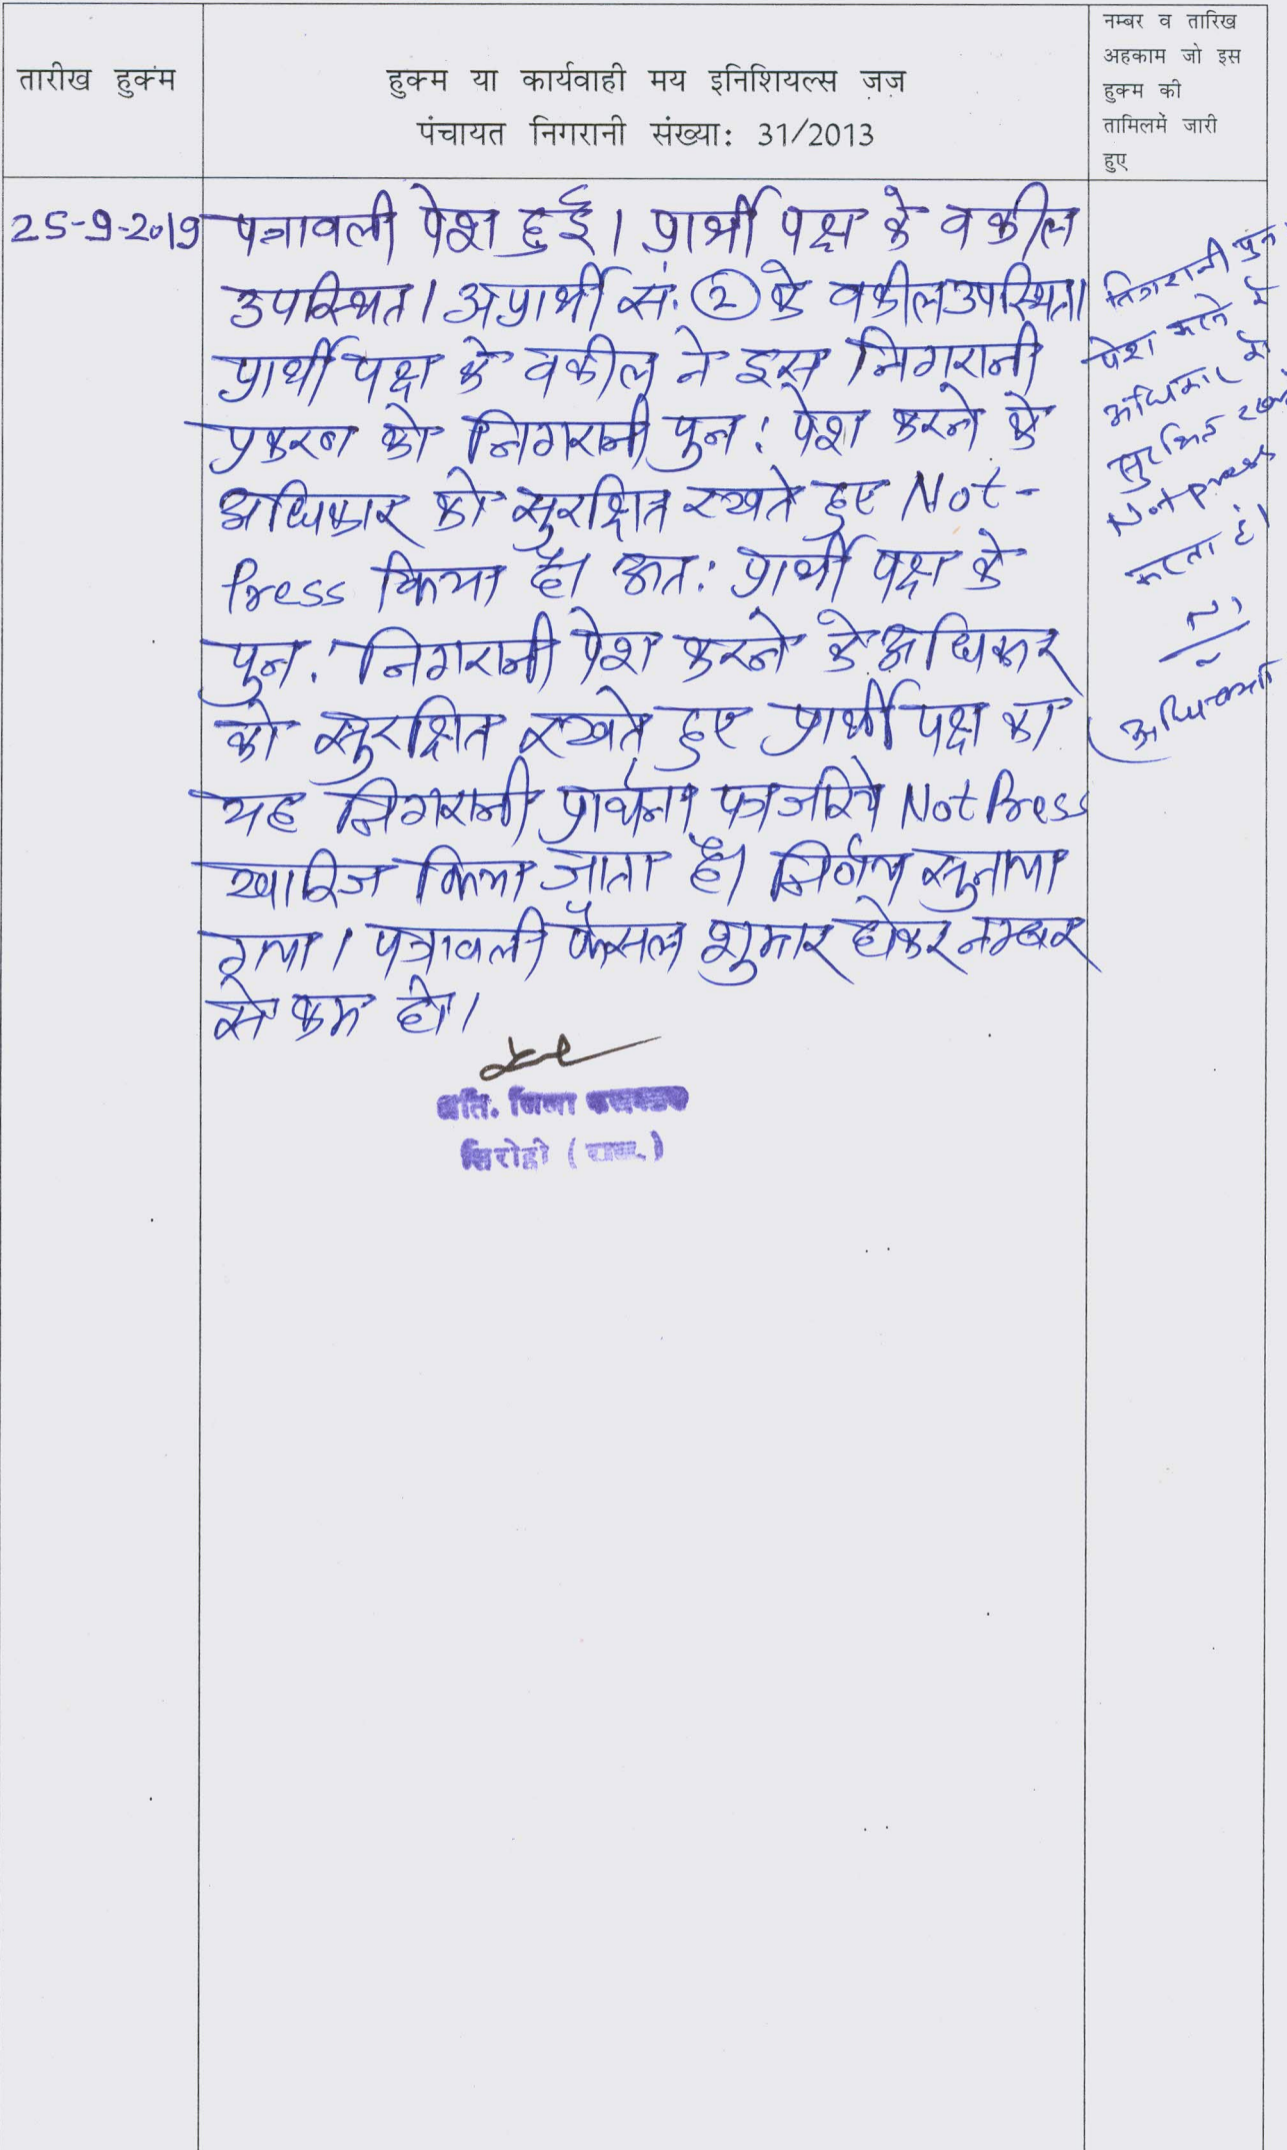 तारीख हुक्म
हुक्म या कार्यवाही मय इनिशियल्स जज
पंचायत निगरानी संख्या: 31/2013
नम्बर व तारिख
अहकाम जो इस
हुक्म की
तामिलमें जारी
हुए
25-9-2019
पत्रावली पेश हुई। प्रार्थी पक्ष के वकील
उपस्थित। अप्रार्थी सं. 2 के वकील उपस्थित।
प्रार्थी पक्ष के वकील ने इस निगरानी
प्रकरण को निगरानी पुन: पेश करने के
अधिकार को सुरक्षित रखते हुए Not-
Press किया है। अत: प्रार्थी पक्ष के
पुन: निगरानी पेश करने के अधिकार
को सुरक्षित रखते हुए प्रार्थी पक्ष का
यह निगरानी प्रार्थना पत्र जरिये Not Press
खारिज किया जाता है। निर्णय सुनाया
गया। पत्रावली फैसल शुमार होकर नम्बर
से कम हो।
अति. जिला कलक्टर
सिरोही (राज.)
निगरानी पुन:
पेश करने के
अधिकार को
सुरक्षित
Not press
करता है।
अधिवक्ता